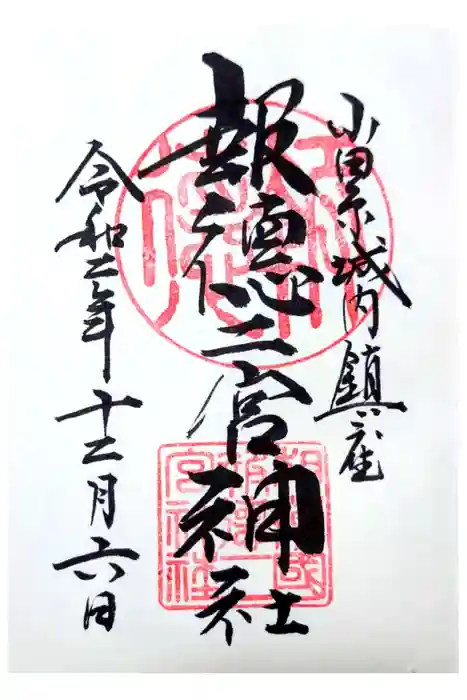 小田原城内鎮座
報徳二宮神社
令和二年十二月六日